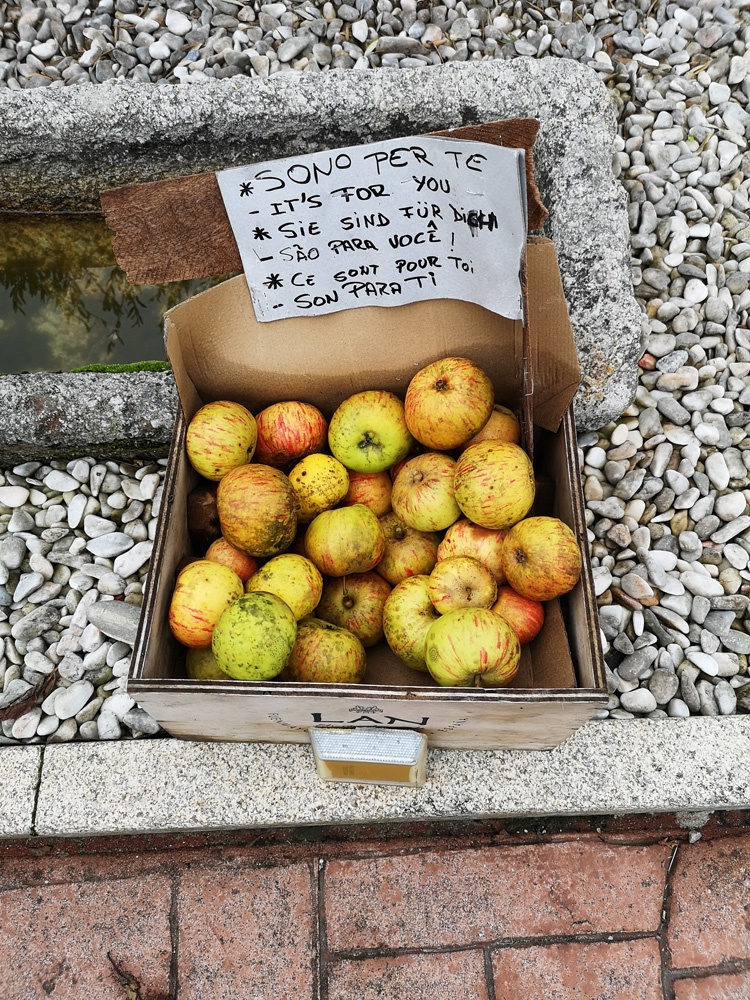 *SONO PER TE
- IT'S FOR YOU
* SIE SIND FÜR DICH
- SÃO PARA VOCÊ!
* CE SONT POUR TOI
- SON PARA TI
LAN